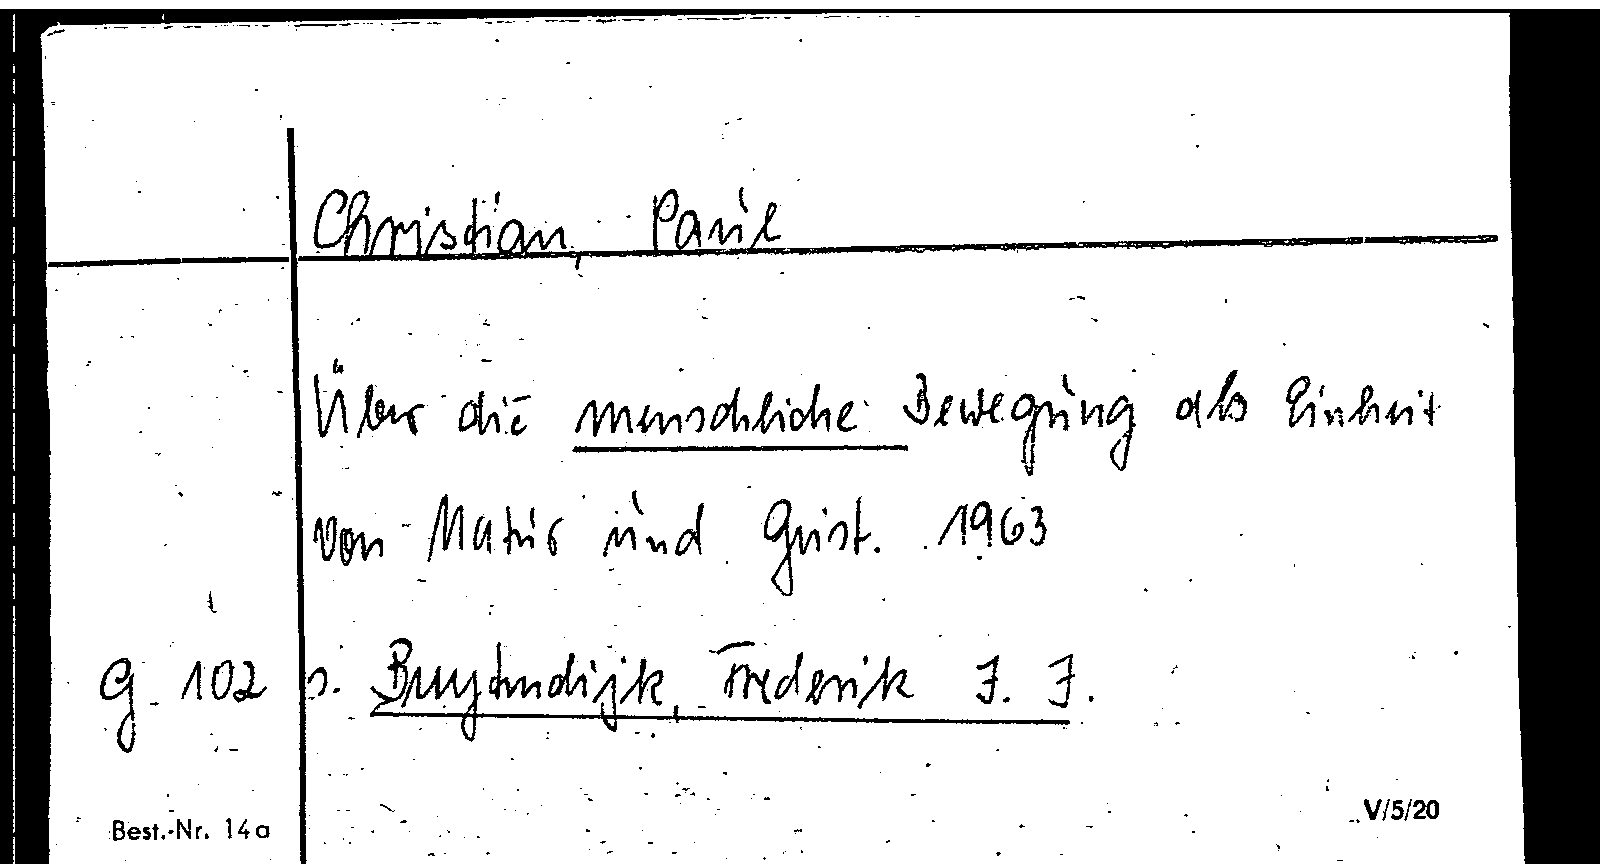 Christian, Paul
Über die menschliche Bewegung als Einheit
von Natur und Geist. 1963
G 102 s. Buytendijk, Frederik J. J.
Best.-Nr. 14a V/5/20